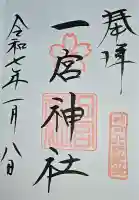 奉拝
一宮神社
令和七年一月八日